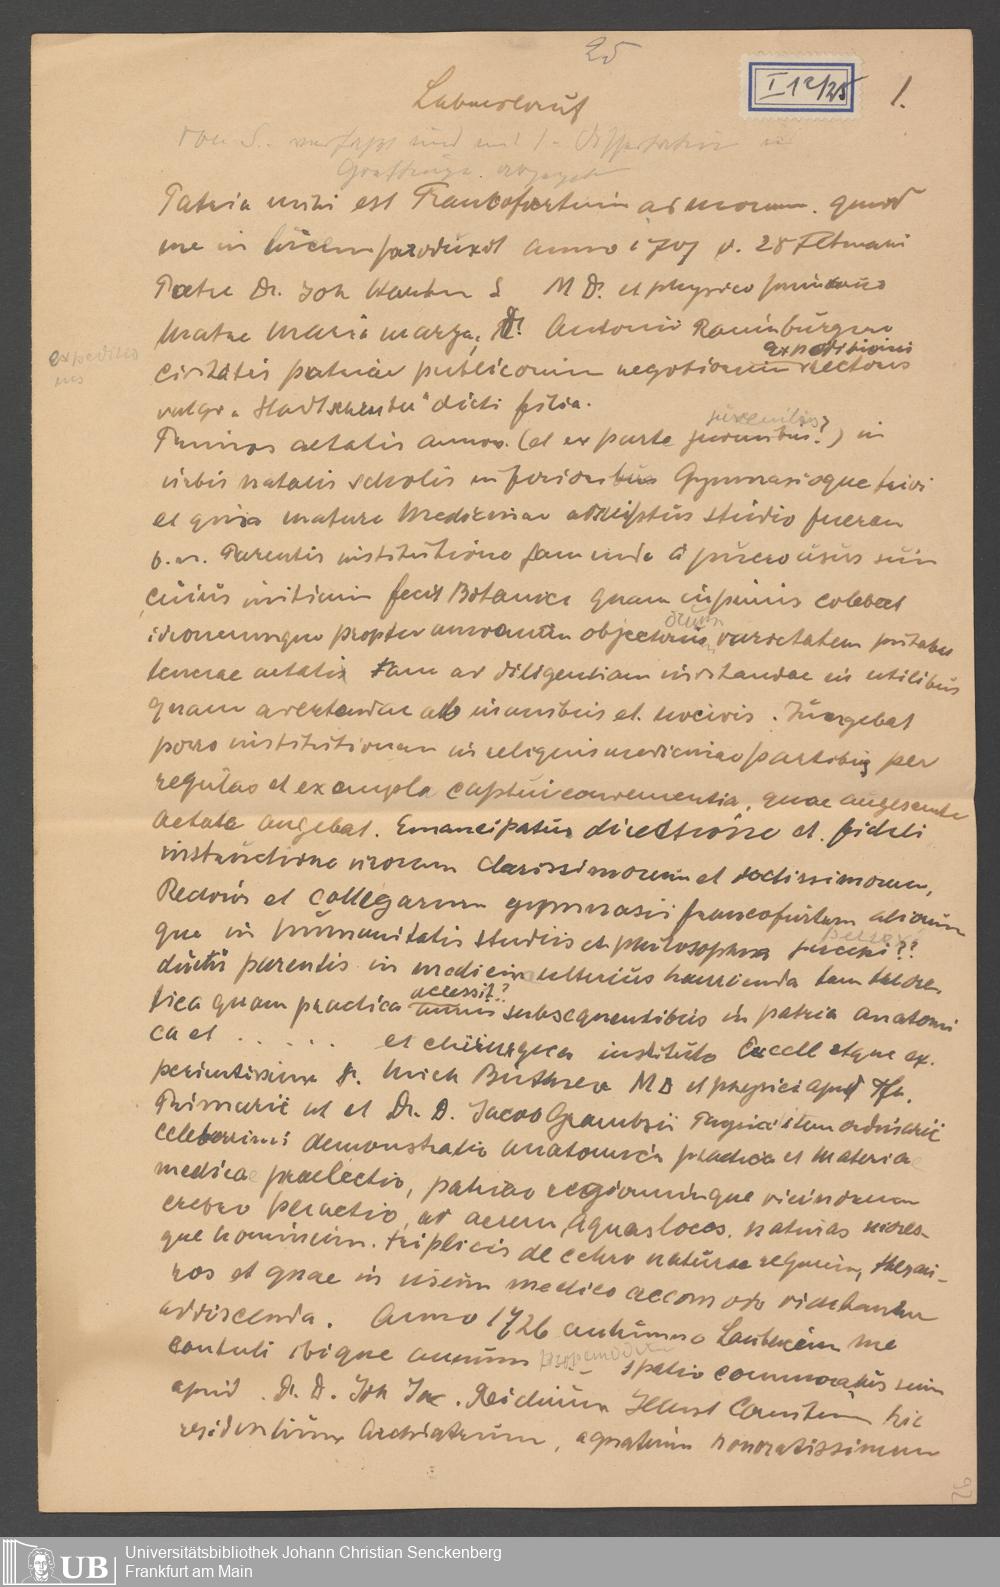 25
I 12/25
1.
Lebenslauf
von S. verfasst und mit s. Dissertation in
Goettingen
Patria mihi est Francofurtum ad moenum. quod
me in lucem produxit anno 1707 d. 28 Februarii
Patre Dr. Joh Hartm S MD. et physico
Matre Maria Marg., Dr. Antonii Raumburgero
expeditio
nis
expeditioni
civitatis patriae publicorum negotiorum rectoris
vulgo "Stadtschreiber" dicti filia.
juveniles?
Primos aetatis annos (et ex parte ?) in
urbis natalis scholis inferioribus Gymnasioque trivi
et quia mature Medicinae adscriptus studio fueram
b. m. Parentis institutione jam inde a puero usus sum
cuius initium fecit Botanica quam inprimis colebat
idoneumque propter amoenam objectorum varietatem putabat
tenerae aetatis tam ad diligentiam incitandae in utilibus
quam avertendae ab inanibus et nocivis. Juvgebat
porro institutionem in reliquis medicinae partibus per
regulas et exempla captui convenientia, quae augescente
aetate augebat. Emancipatus directione et fideli
instructione virorum clarissimorum et doctissimorum,
Rectoris et collegarum gymnasii francofurtum aliorum
que in humanitatis studiis et philosophia ??
ductu parentis in medicina ulterius haurienda tam theore-
accessit?
tica quam practica annis subsequentibus in patria anatomi
ca et . . . . . et chirurgica instituto Excell atque ex-
perientissimo Dr. Mich Büttnero MD et physici apud Ffu.
Primarii ut et Dr. D. Jacob Grambsii Physici item ordinarii
celeberrimi demonstratio anatomica practica et materiae
medicae praelectio, patriae regionumque vicinarum
crebro peractio, ad aerem, aquas locos, naturas mores-
que hominum. triplicis de cetero naturae regnum, thesau-
ros et quae in usum medico accomodo videbantur
addiscenda. Anno 1726 autumno Laubacum me
contuli ibique annum propemodum spatio commoratus sum
apud Dr. D. Joh Jac. Reichium Illust Comitum hic
residentium Archiatrum, agnatum honoratissimum
92
UB
Universitätsbibliothek Johann Christian Senckenberg
Frankfurt am Main